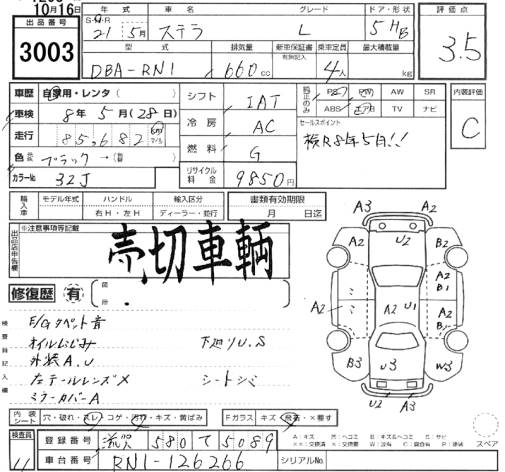 10月16日
出品番号
3003
年式 車名 グレード ドア・形状
S・H・R
21年 5月 ステラ L 5 HB
評価点
3.5
型式 排気量 新車保証書 乗定員 最大積載量
有無記入
DBA-RN1 660cc 4人 kg
車歴 自家用・レンタ
車検 8年 5月(28日)
走行 85,682
色 ブラック→
カラーNo. 32J
シフト IAT
冷房 AC
燃料 G
リサイクル料金 9850円
純正のみ PS PW AW SR
ABS エアB TV ナビ
セールスポイント
検R8年5月!!
内装評価
C
輸入車 モデル年式 ハンドル 輸入区分
右H・左H ディーラー・並行
書類有効期限
月 日迄
※注意事項等記載
出品店申告欄
売切車輌
修復歴 有
箇所
検査員記入欄
E/Gタペット音
オイルにじみ 下廻りU.S
外装A.U
左テールレンズX シートシミ
ミラーカバーA
A3 A2
U2
A2 B2
A2 B1
A2 A2 U1 A2 B1
B3 U3 W3
U2 A3
内装シート 穴・破れ・スレ・コゲ・汚れ・キズ・黄ばみ
Fガラス キズ・飛石・×要す
スペア
検査員
登録番号 滋賀 580 て 5089
車台番号 RN1-126266
シリアルNo.